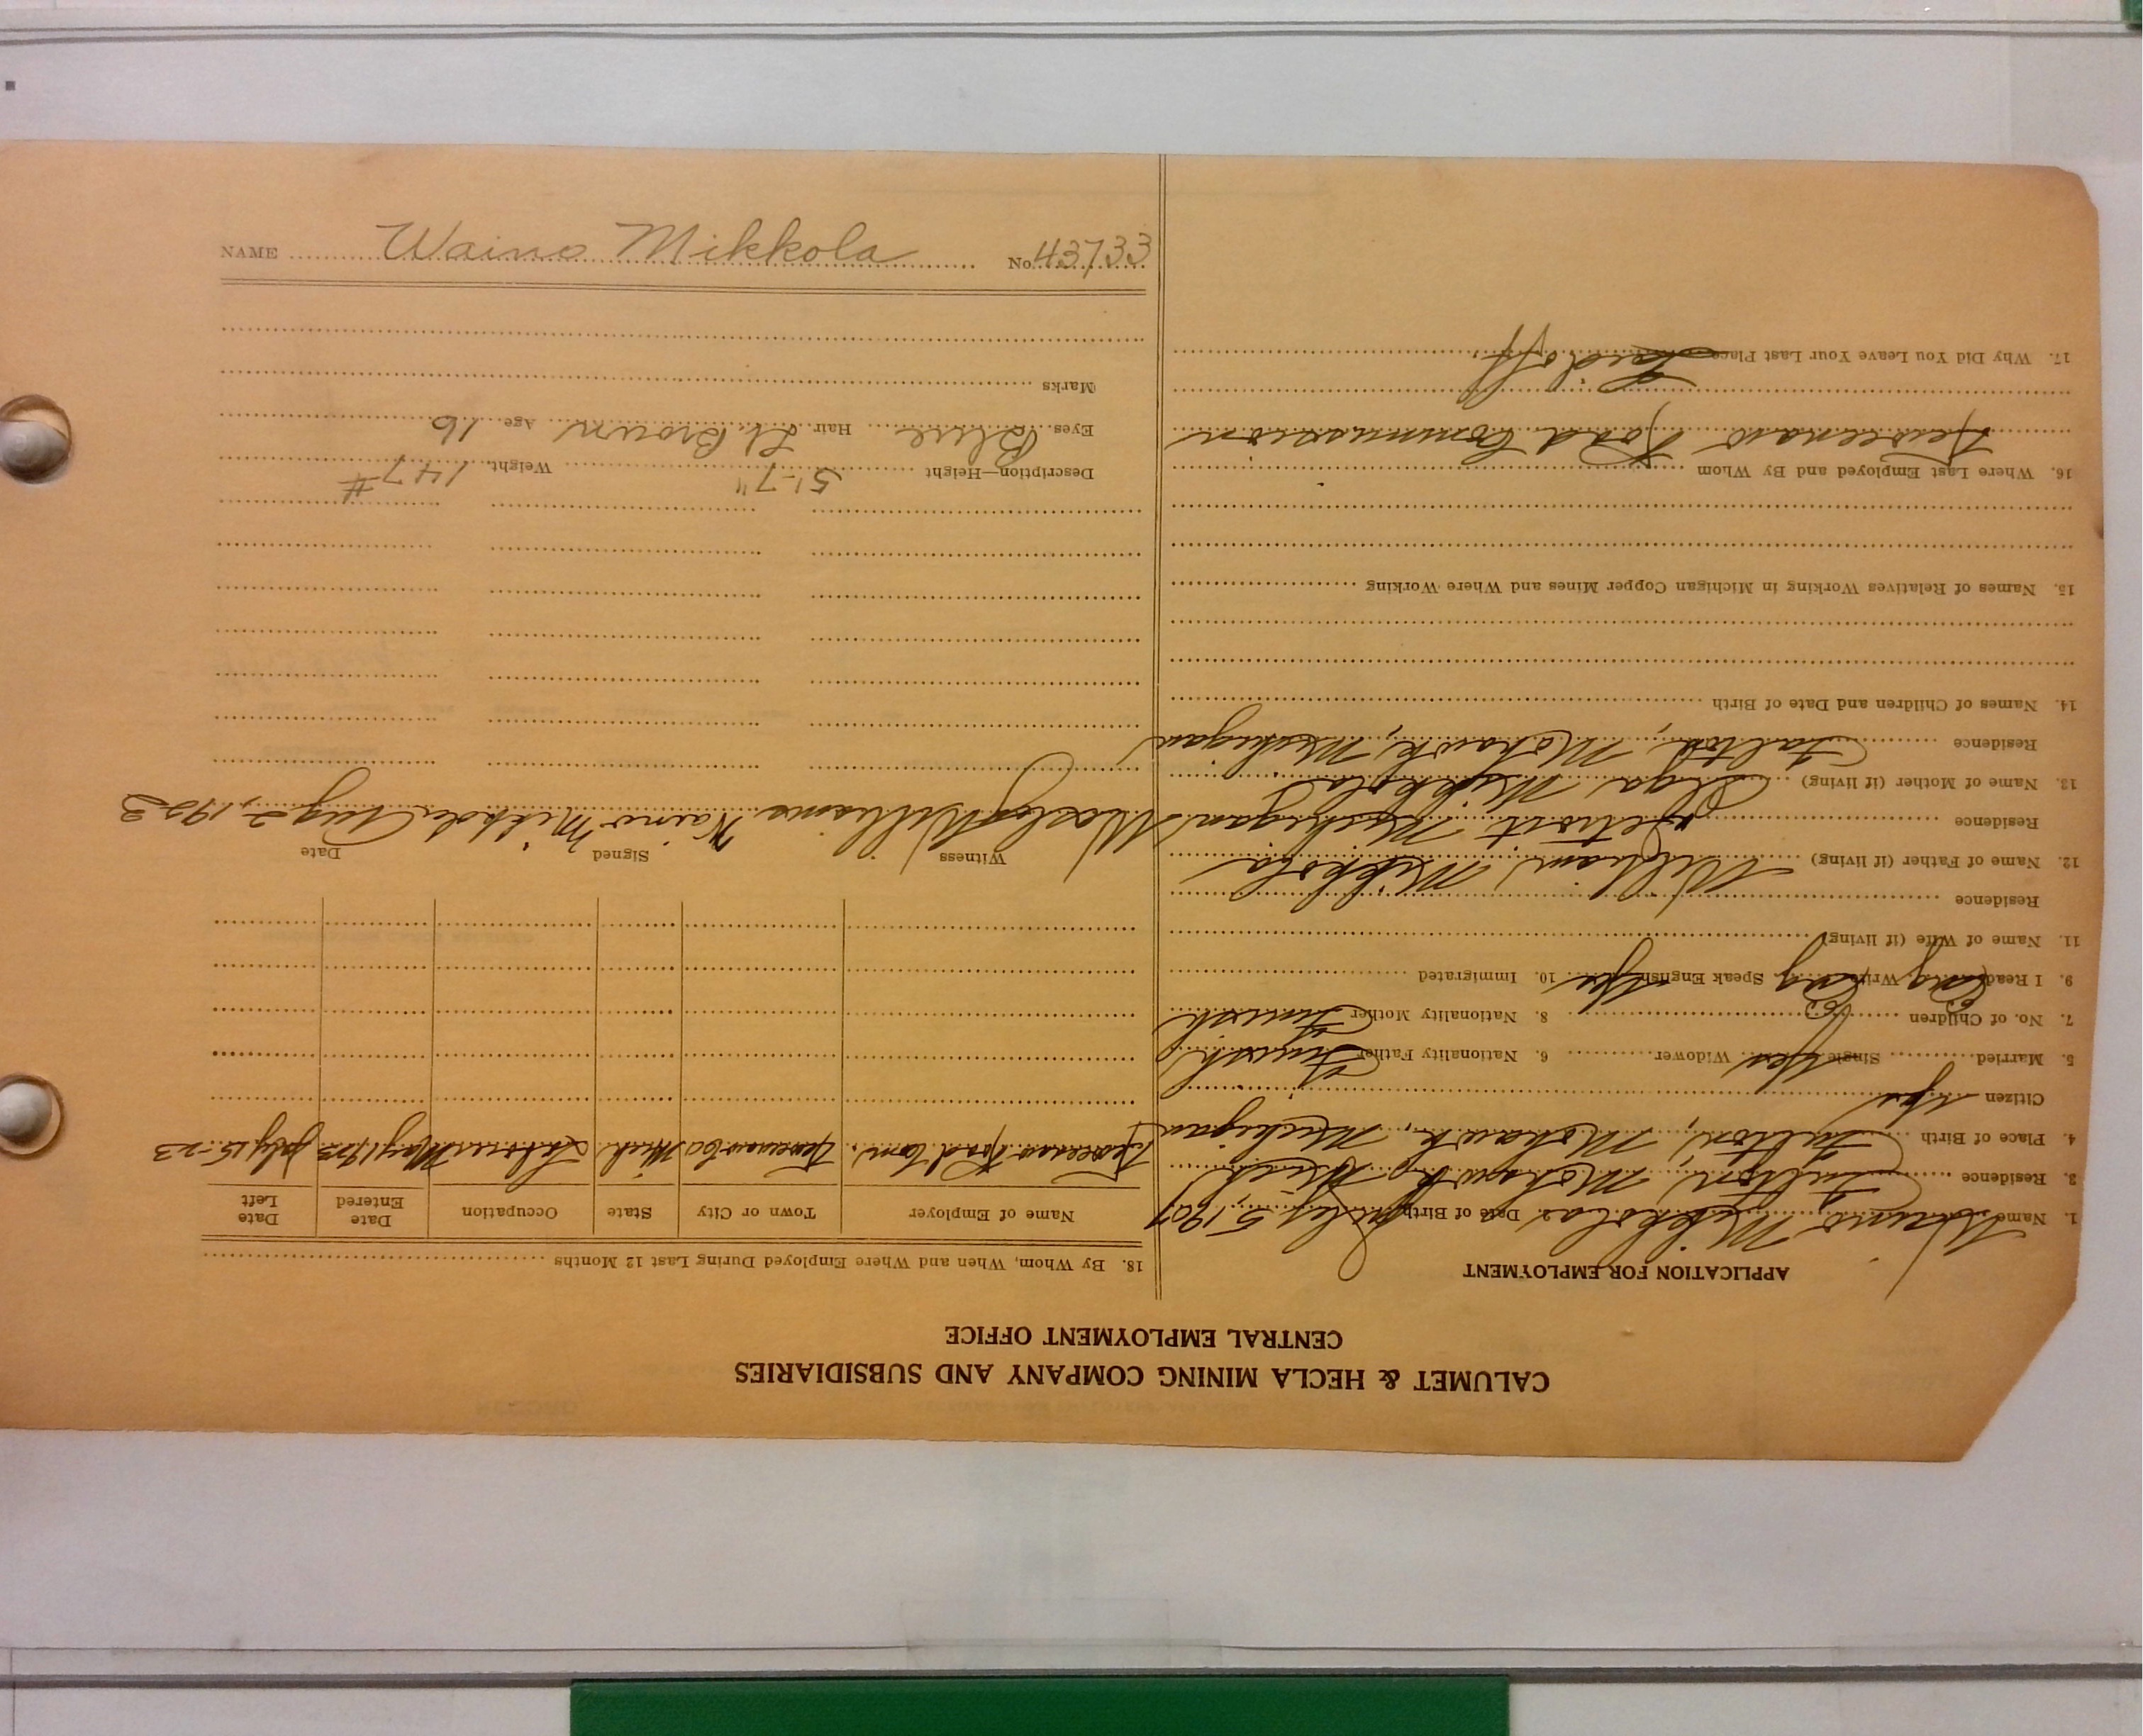 CALUMET & HECLA MINING COMPANY AND SUBSIDIARIES
CENTRAL EMPLOYMENT OFFICE
APPLICATION FOR EMPLOYMENT
1. Name Waino Mikkola 2. Date of Birth July 5, 1907
3. Residence Fulton, Mohawk, Mich
4. Place of Birth Fulton, Mohawk, Michigan
Citizen Yes
5. Married Single Yes Widower 6. Nationality Father Finnish
7. No. of Children 8. Nationality Mother Finnish
9. I Read Eng Write Eng Speak English Yes 10. Immigrated
11. Name of Wife (if living)
Residence
12. Name of Father (if living) William Mikkola
Residence Detroit Michigan
13. Name of Mother (if living) Olga Mikkola
Residence Fulton, Mohawk, Michigan
14. Names of Children and Date of Birth
15. Names of Relatives Working in Michigan Copper Mines and Where Working
16. Where Last Employed and By Whom
Keweenaw Road Commission
17. Why Did You Leave Your Last Place Laid off
18. By Whom, When and Where Employed During Last 12 Months
Name of Employer Town or City State Occupation Date Entered Date Left
Keweenaw Road Com. Keweenaw Co Mich Laborer May 1923 July 15-23
Witness Signed Date
Wesley Williams Waino Mikkola Aug 2, 1923
Description—Height 5'-7" Weight 147 #
Eyes Blue Hair Lt. Brown Age 16
Marks
NAME Waino Mikkola No 43733